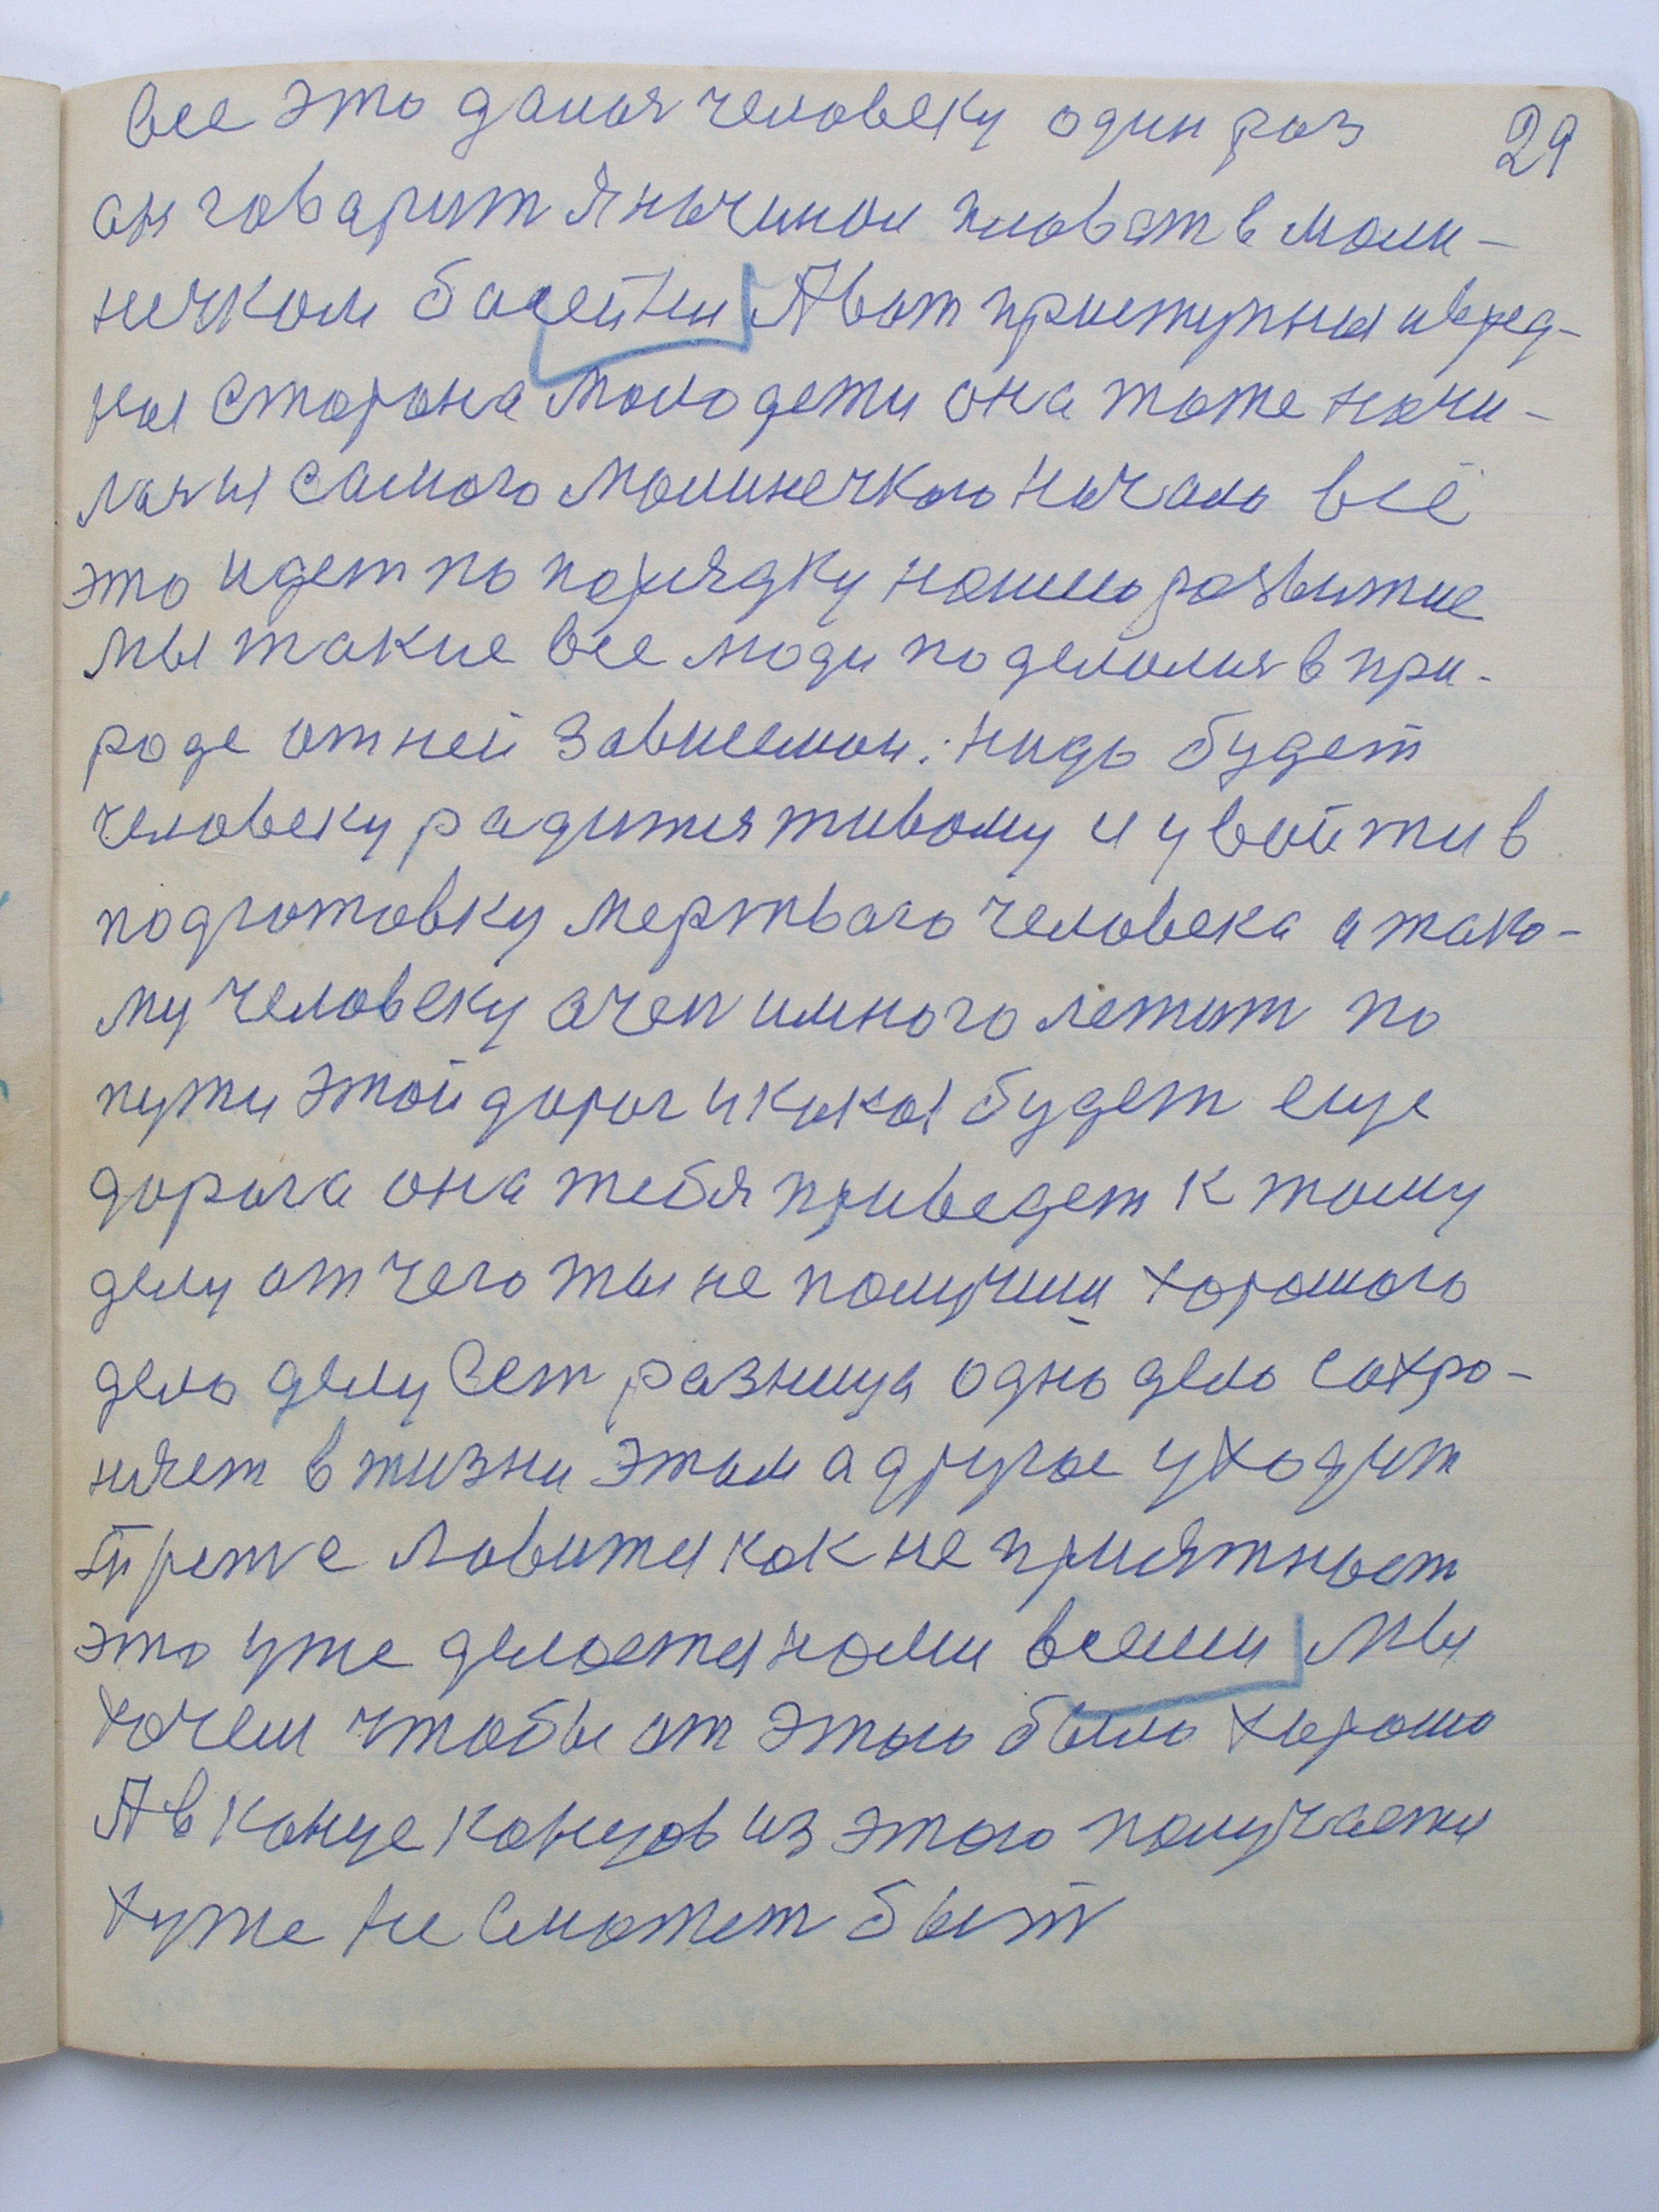 все это далоя человеку один раз 29
он говарит я нычинои плават в мали-
нечком басейни А вот приступна и вред-
ная сторона молодежи она тоже начи-
лася ш самого малинечкого ничало всё
это идет по порядку нашего розвитие
мы такие все люди поделолися в при-
роде от ней зависемои. надо будет
человеку радится живому и увойти в
подготовку мертваго человека а тако-
му человеку очен и много лежит по
пути этой дорог и какая будет еще
дорога она тебя приведет к тому
делу от чего ты не получиш хорошого
дело делу ест разница одно дело сохро-
няет в жизни этом а другое уходит
треже ловится как не приятност
это уже делоется нами всеми Мы
хочем чтобы от этого было хорошо
А в конце концов из этого получается
хуже не сможет быт